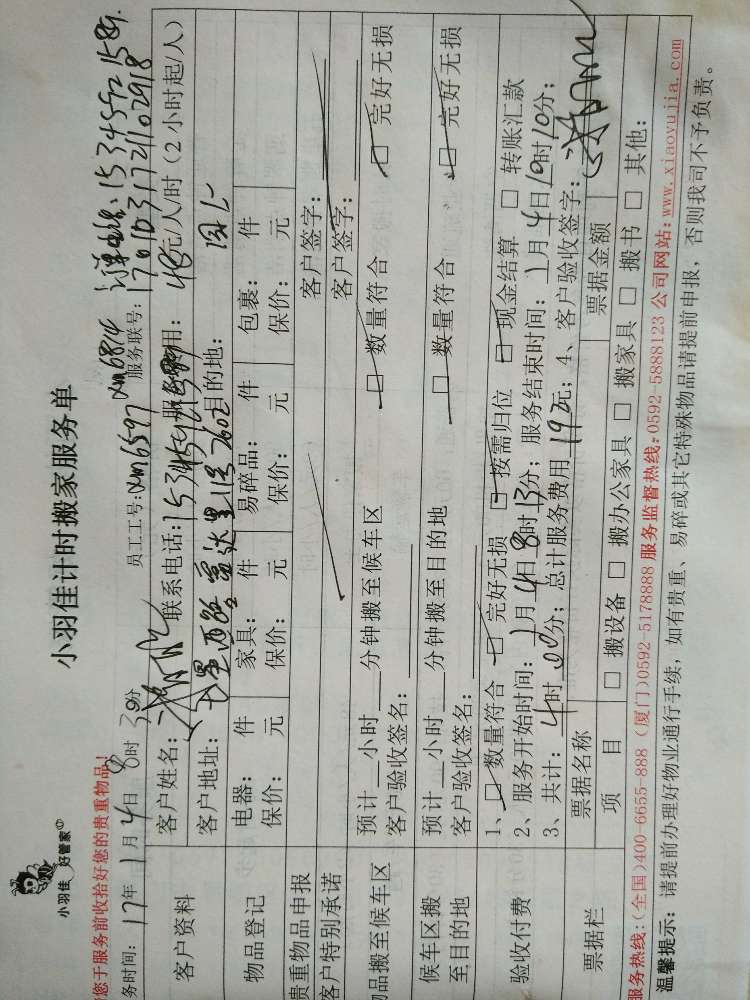 小羽佳 好管家
小羽佳计时搬家服务单
您于服务前收拾好您的贵重物品!
务时间: 17年 1月 4日 8时 30分 员工工号: xm6597 xm6814 服务联号:
1701031721102918
客户资料 客户姓名: 联系电话: 服务费用: 48元/人/时 (2小时起/人)
客户地址: 目的地:
物品登记 电器: 件 家具: 件 易碎品: 件 包裹: 件
保价: 元 保价: 元 保价: 元 保价: 元
贵重物品申报 客户签字:
客户特别承诺 客户签字:
物品搬至候车区 预计 小时 分钟搬至候车区 □ 数量符合 □ 完好无损
客户验收签名:
候车区搬至目的地 预计 小时 分钟搬至目的地 □ 数量符合 □ 完好无损
客户验收签名:
验收付费 1、□ 数量符合 □ 完好无损 □ 按需归位 □ 现金结算 □ 转账汇款
2、服务开始时间: 1月4日8时13分; 服务结束时间: 1月4日10时10分;
3、共计: 4时00分; 总计服务费用192元; 4、客户验收签字:
票据栏 票据名称 票据金额
项 目 □ 搬设备 □ 搬办公家具 □ 搬家具 □ 搬书 □ 其他:
服务热线:(全国)400-6655-888 (厦门)0592-5178888 服务监督热线:0592-5888123 公司网站:www.xiaoyujia.com
温馨提示: 请提前办理好物业通行手续, 如有贵重、易碎或其它特殊物品请提前申报, 否则我司不予负责。